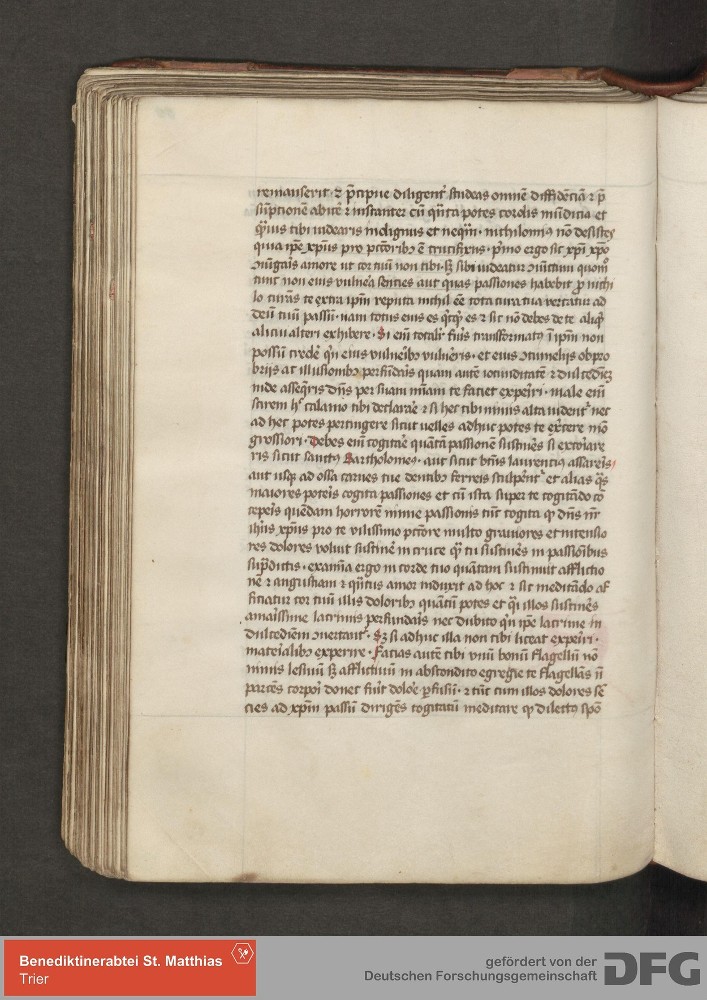 remanserit · et p̄cipue diligent᷑ studeas omnē diffidēciā ⁊ p̄
sūptionē abicē ⁊ instanter cū q̄nta potes cordis mūdicia et
q̄uis tibi videaris indignus et neq̄m · nichilomiꝰ nō desistes
quia ip̄e xp̄us pro pctōribꝫ ē crucifixus · p̄mo ergo sic xp̄i xp̄o
ɔiūgaris amore ut cor tuū non tibi · sꝫ sibi videatur ɔiūctum quom̊
tunc non eius vulnera senties aut quas passiones habebit pro nichi
lo curās te extra ip̄m reputa nichil eē tota cura tua vertatur ad
deū tuū passū · nam totus eius es q̇cq̇d es ⁊ sic nō debes de te aliq̇d
alicui alteri exhibere · Si em̄ totalit᷑ fuĩs transformatꝰ ī ip̄m non
possū credē q̇n eius vulneribꝫ vulneris · et eius ɔtumelijs obpro
brijs ac illusionibꝫ perfundaris quam autē iocunditatē ⁊ dulcediēꝫ
inde asseq̄ris dn̄s per suam mīam te faciet expeiri · male em̄
scirem hͦ calamo tibi declarare ⁊ si hec tibi nimis alta vident᷑ nec
ad hec potes pertingere sicut velles adhuc potes te ex̄cere mōo
grossiori · Debes em̄ cogitare quātā passionē sustineres si excoriare
ris sicut sanctꝰ Bartholomeꝰ · aut sicut btūs laurencius assareris
aut usqꝫ ad ossa carnes tue dentibꝫ ferreis sculpent᷑ et alias q̄s
maiores poteris cogita passiones et cū ista super te cogitādo cō
ceperis quēdam horrorē nimie passionis tūc cogita ꝙ dn̄s nr̄
ih̄us xp̄us pro te vilissimo pctōre multo graviores et intensio
res dolores voluit sustinē in cruce q̄ tu sustineres in passioībus
sup̄dictis · examīa ergo in corde tuo quantam sustinuit afflictio
nē ⁊ angustiam ⁊ q̄ntus amor induxit ad hoc ⁊ sic meditādo af
ficiatur cor tuū illis doloribꝫ quātū potes et q̇si illos sustineres
amarissime lacrimis perfundaris nec dubito q̇n ip̄e lacrime in
dulcediēm ɔvertant᷑ · Sꝫ si adhuc illa non tibi liceat expeiri ·
materialibꝫ experire · Facias autē tibi vnū bonū flagellū nō
nimis lesiuū sꝫ afflictiuū in abscondito egregie te flagellās ñ
parcēs corpori donec fuit dolore p̄fusū · ⁊ tūc cum illos dolores sē
cies ad xp̄m passū dirigēs cogitatū meditare ꝙ dilectꝰ spō
Benediktinerabtei St. Matthias
Trier
gefördert von der
Deutschen Forschungsgemeinschaft
DFG